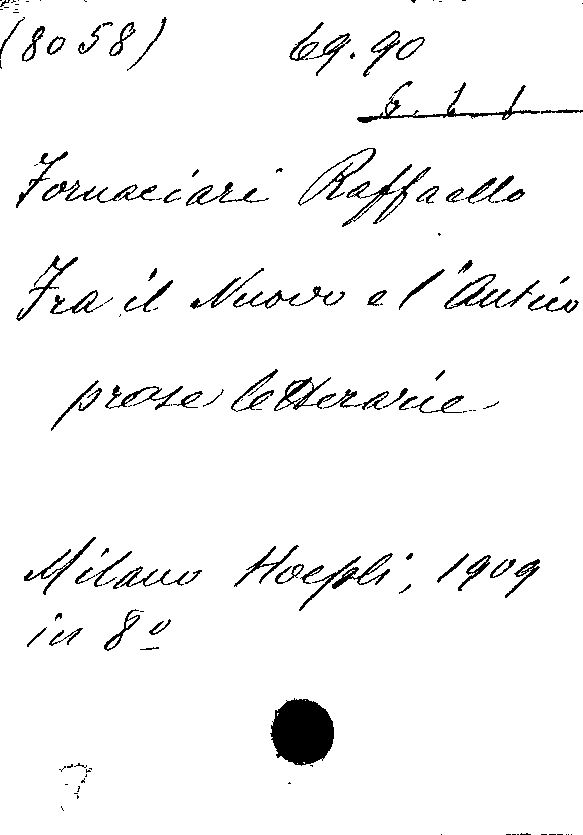 (8058) 69.90
6. 1 1
Fornaciari Raffaello
Fra il Nuovo e l'Antico
prose letterarie
Milano Hoepli, 1909
in 8º
7